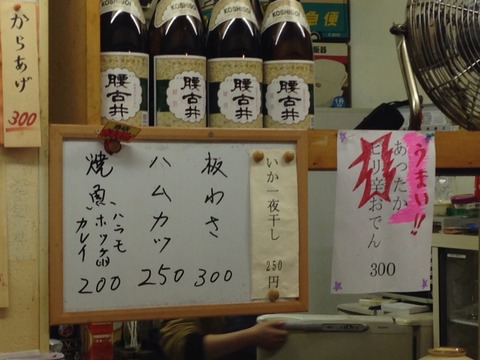 からあげ
300
KOSHIGOI
KOSHIGOI
KOSHIGOI
KOSHIGOI
腰古井
腰古井
腰古井
腰古井
急便
いか一夜干し 250円
板わさ 300
ハムカツ 250
焼魚 ハラモ
ホッケ
カレイ
200
うまい!!
あったか
ピリ辛おでん
300